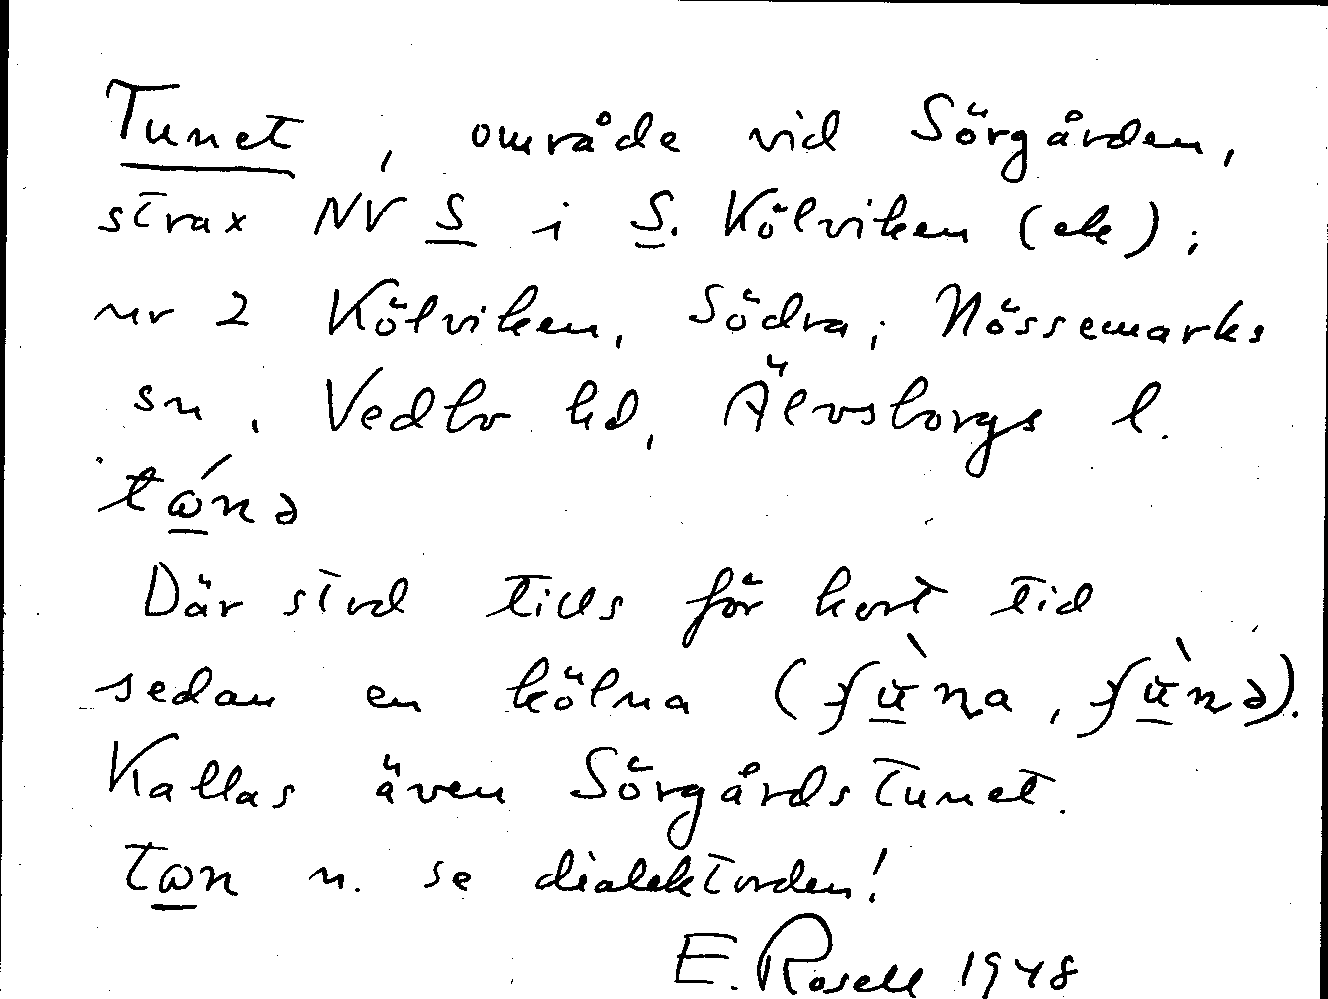 Tunet, område vid Sörgården,
strax NV S i S. Kölviken (ek);
nr 2 Kölviken, Södra; Nössemarks
sn, Vedbo hd, Älvsborgs l.
tώnə
Där stod tills för kort tid
sedan en kölna
Kallas även Sörgårdstunet.
tωn n. se dialektorden!
E. Rosell 1948